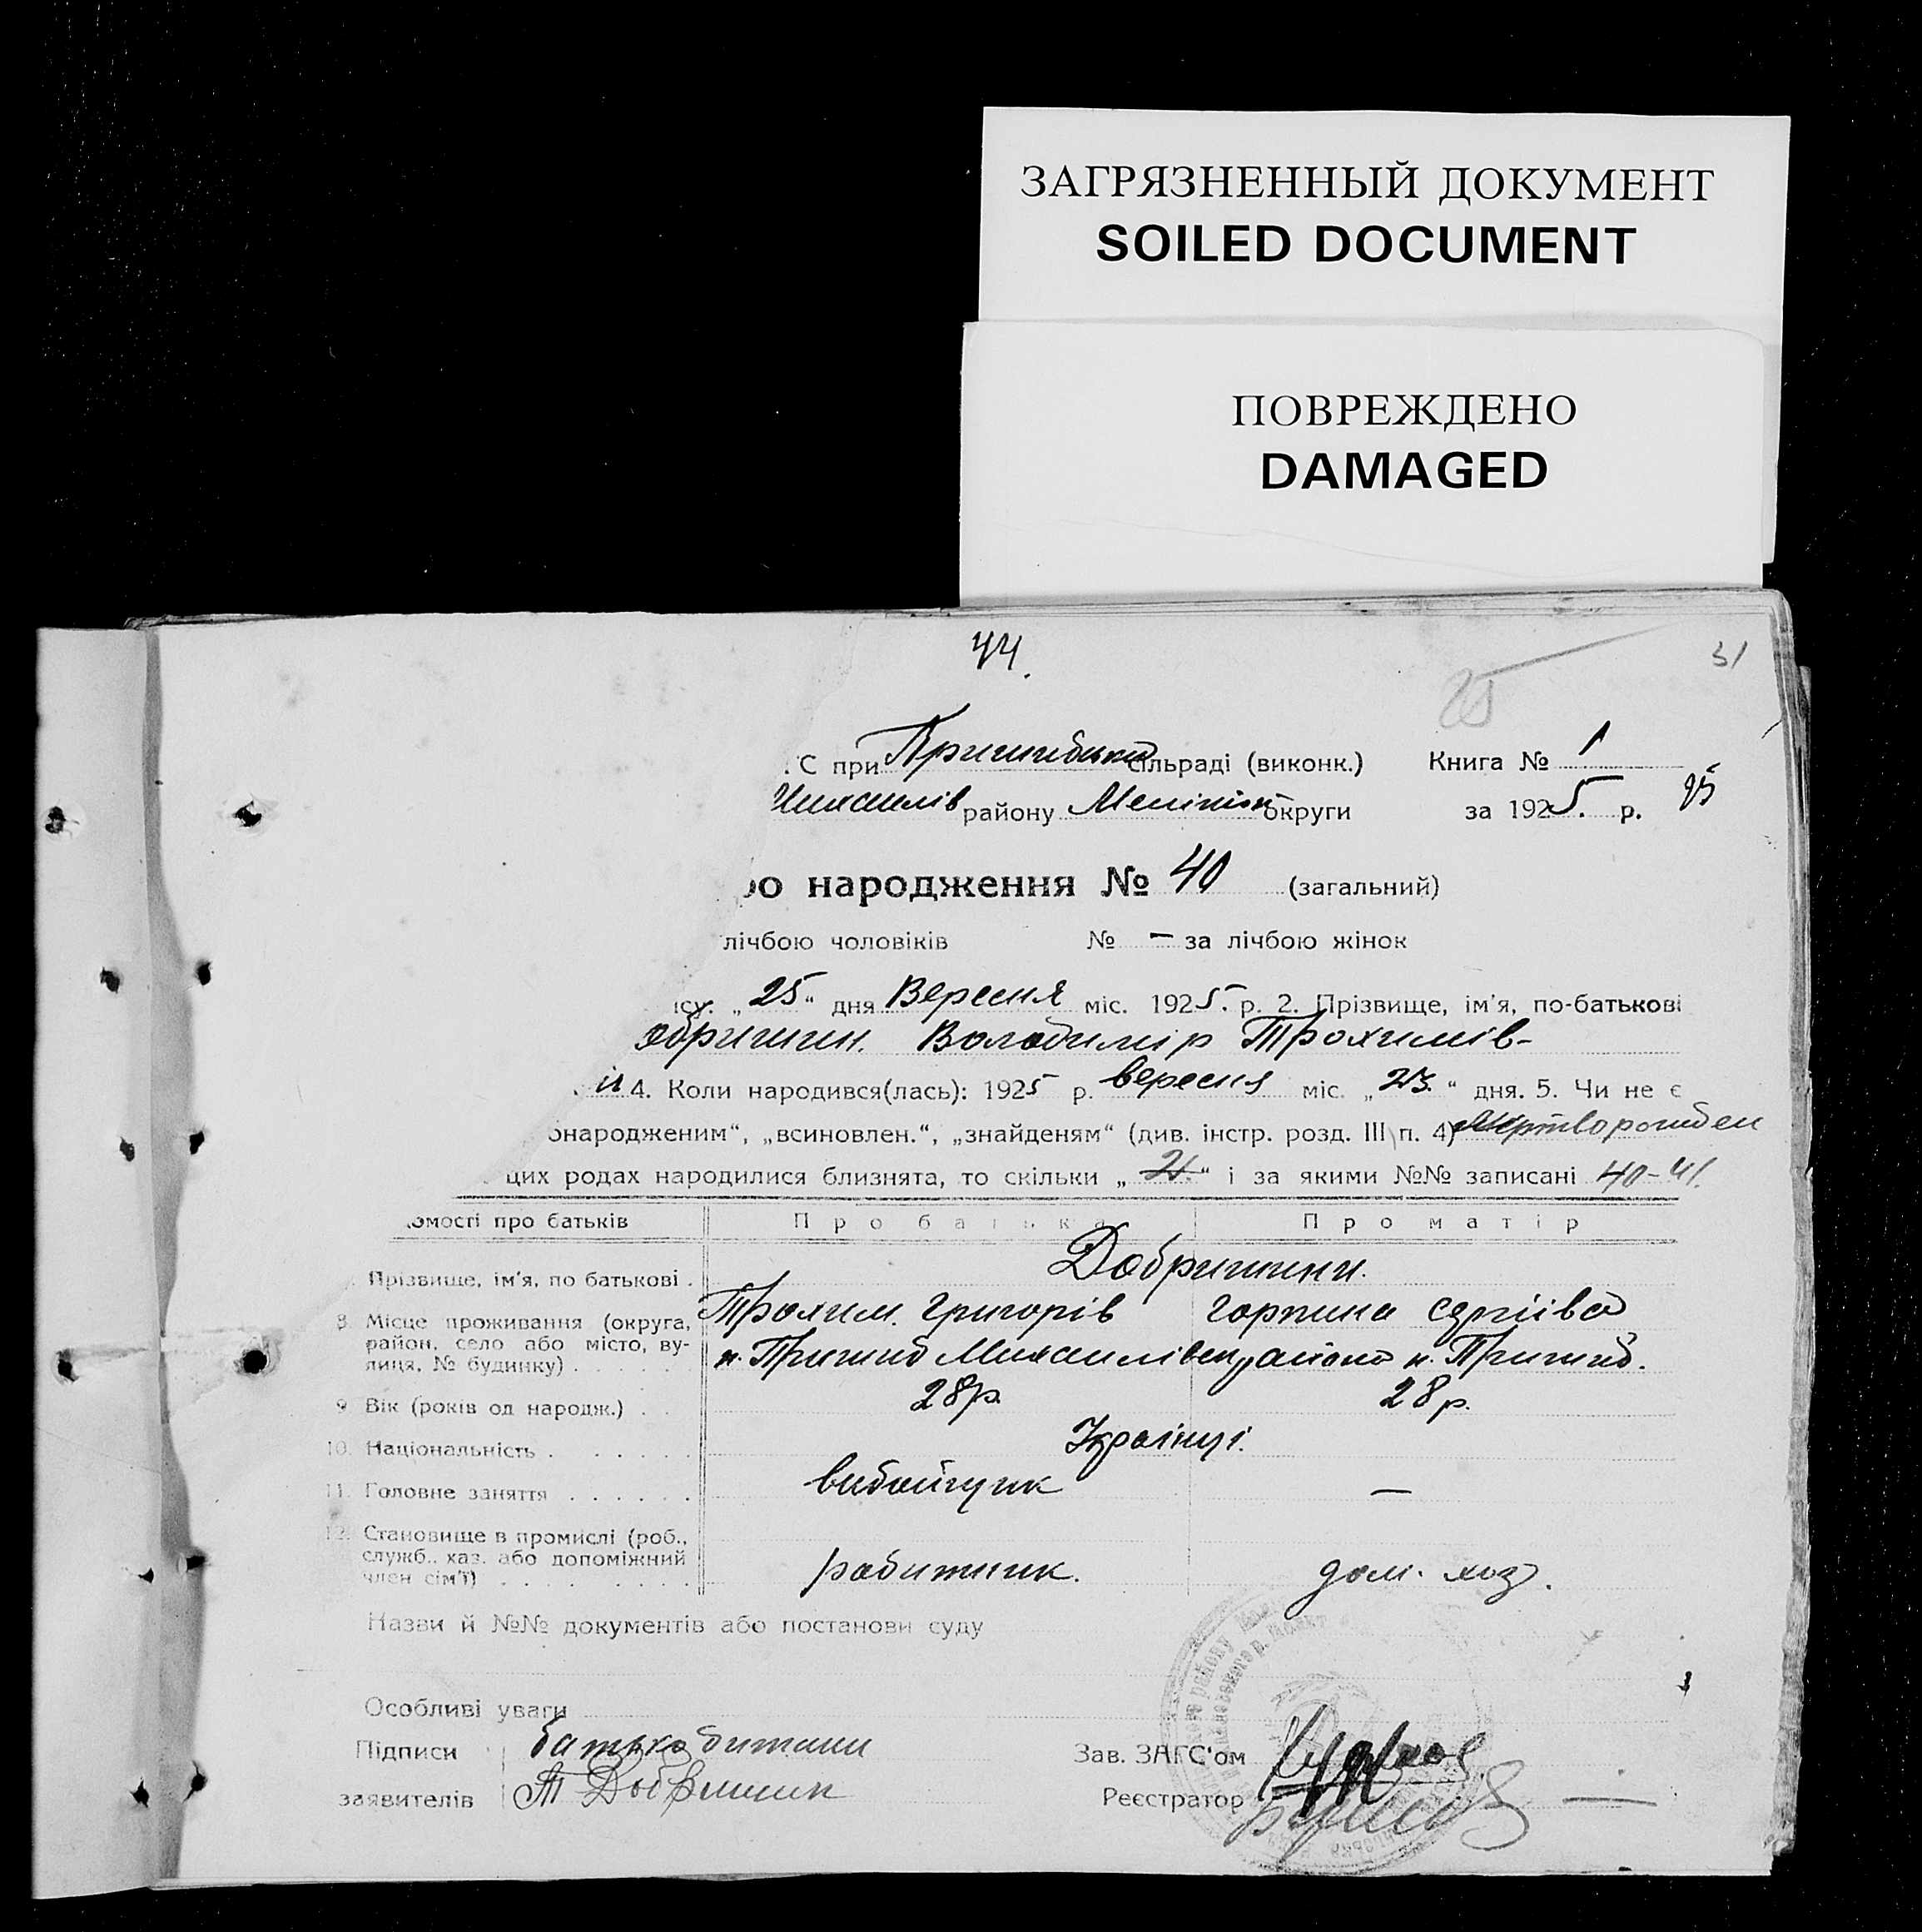 ЗАГРЯЗНЕННЫЙ ДОКУМЕНТ
SOILED DOCUMENT
ПОВРЕЖДЕНО
DAMAGED
44.
25
31
С при Пришибській сільраді (виконк.) Книга № 1
району Меліпіт округи за 1925. р. 95
ро народження № 40 (загальний)
лічбою чоловіків № — за лічбою жінок
ису. „25“ дня Вересня міс. 1925. р. 2. Прізвище, ім'я, по-батькові
обришин. Володимір Трохимів-
й 4. Коли народився(лась): 1925 р. вересня міс. „23.“ дня. 5. Чи не є
онародженим“, „всиновлен.“, „знайденям“ (див. інстр. розд. III п. 4) мертворожден
цих родах народилися близнята, то скільки „2.“ і за якими №№ записані 40-41.
омості про батьків Про батька Про матір
Прізвище, ім'я, по батькові . Добришини.
Трохим. Григорів Горпина Сергіівна
8. Місце проживання (округа, район, село або місто, вулиця, № будинку) . . . . . с. Пришиб Михайлівськ района с. Пришиб.
9. Вік (років од народж.) . . 28 р. 28 р.
10. Національність . . . . . . Українці.
11. Головне заняття . . . . . . вибойщик —
12. Становище в промислі (роб., служб., хаз. або допоміжний член сім'ї) . . . . . . . . . работник. дом. хоз.
Назви й №№ документів або постанови суду
Особливі уваги
Підписи батько дитини Зав. ЗАГС'ом
заявителів Т Добришин Реєстратор